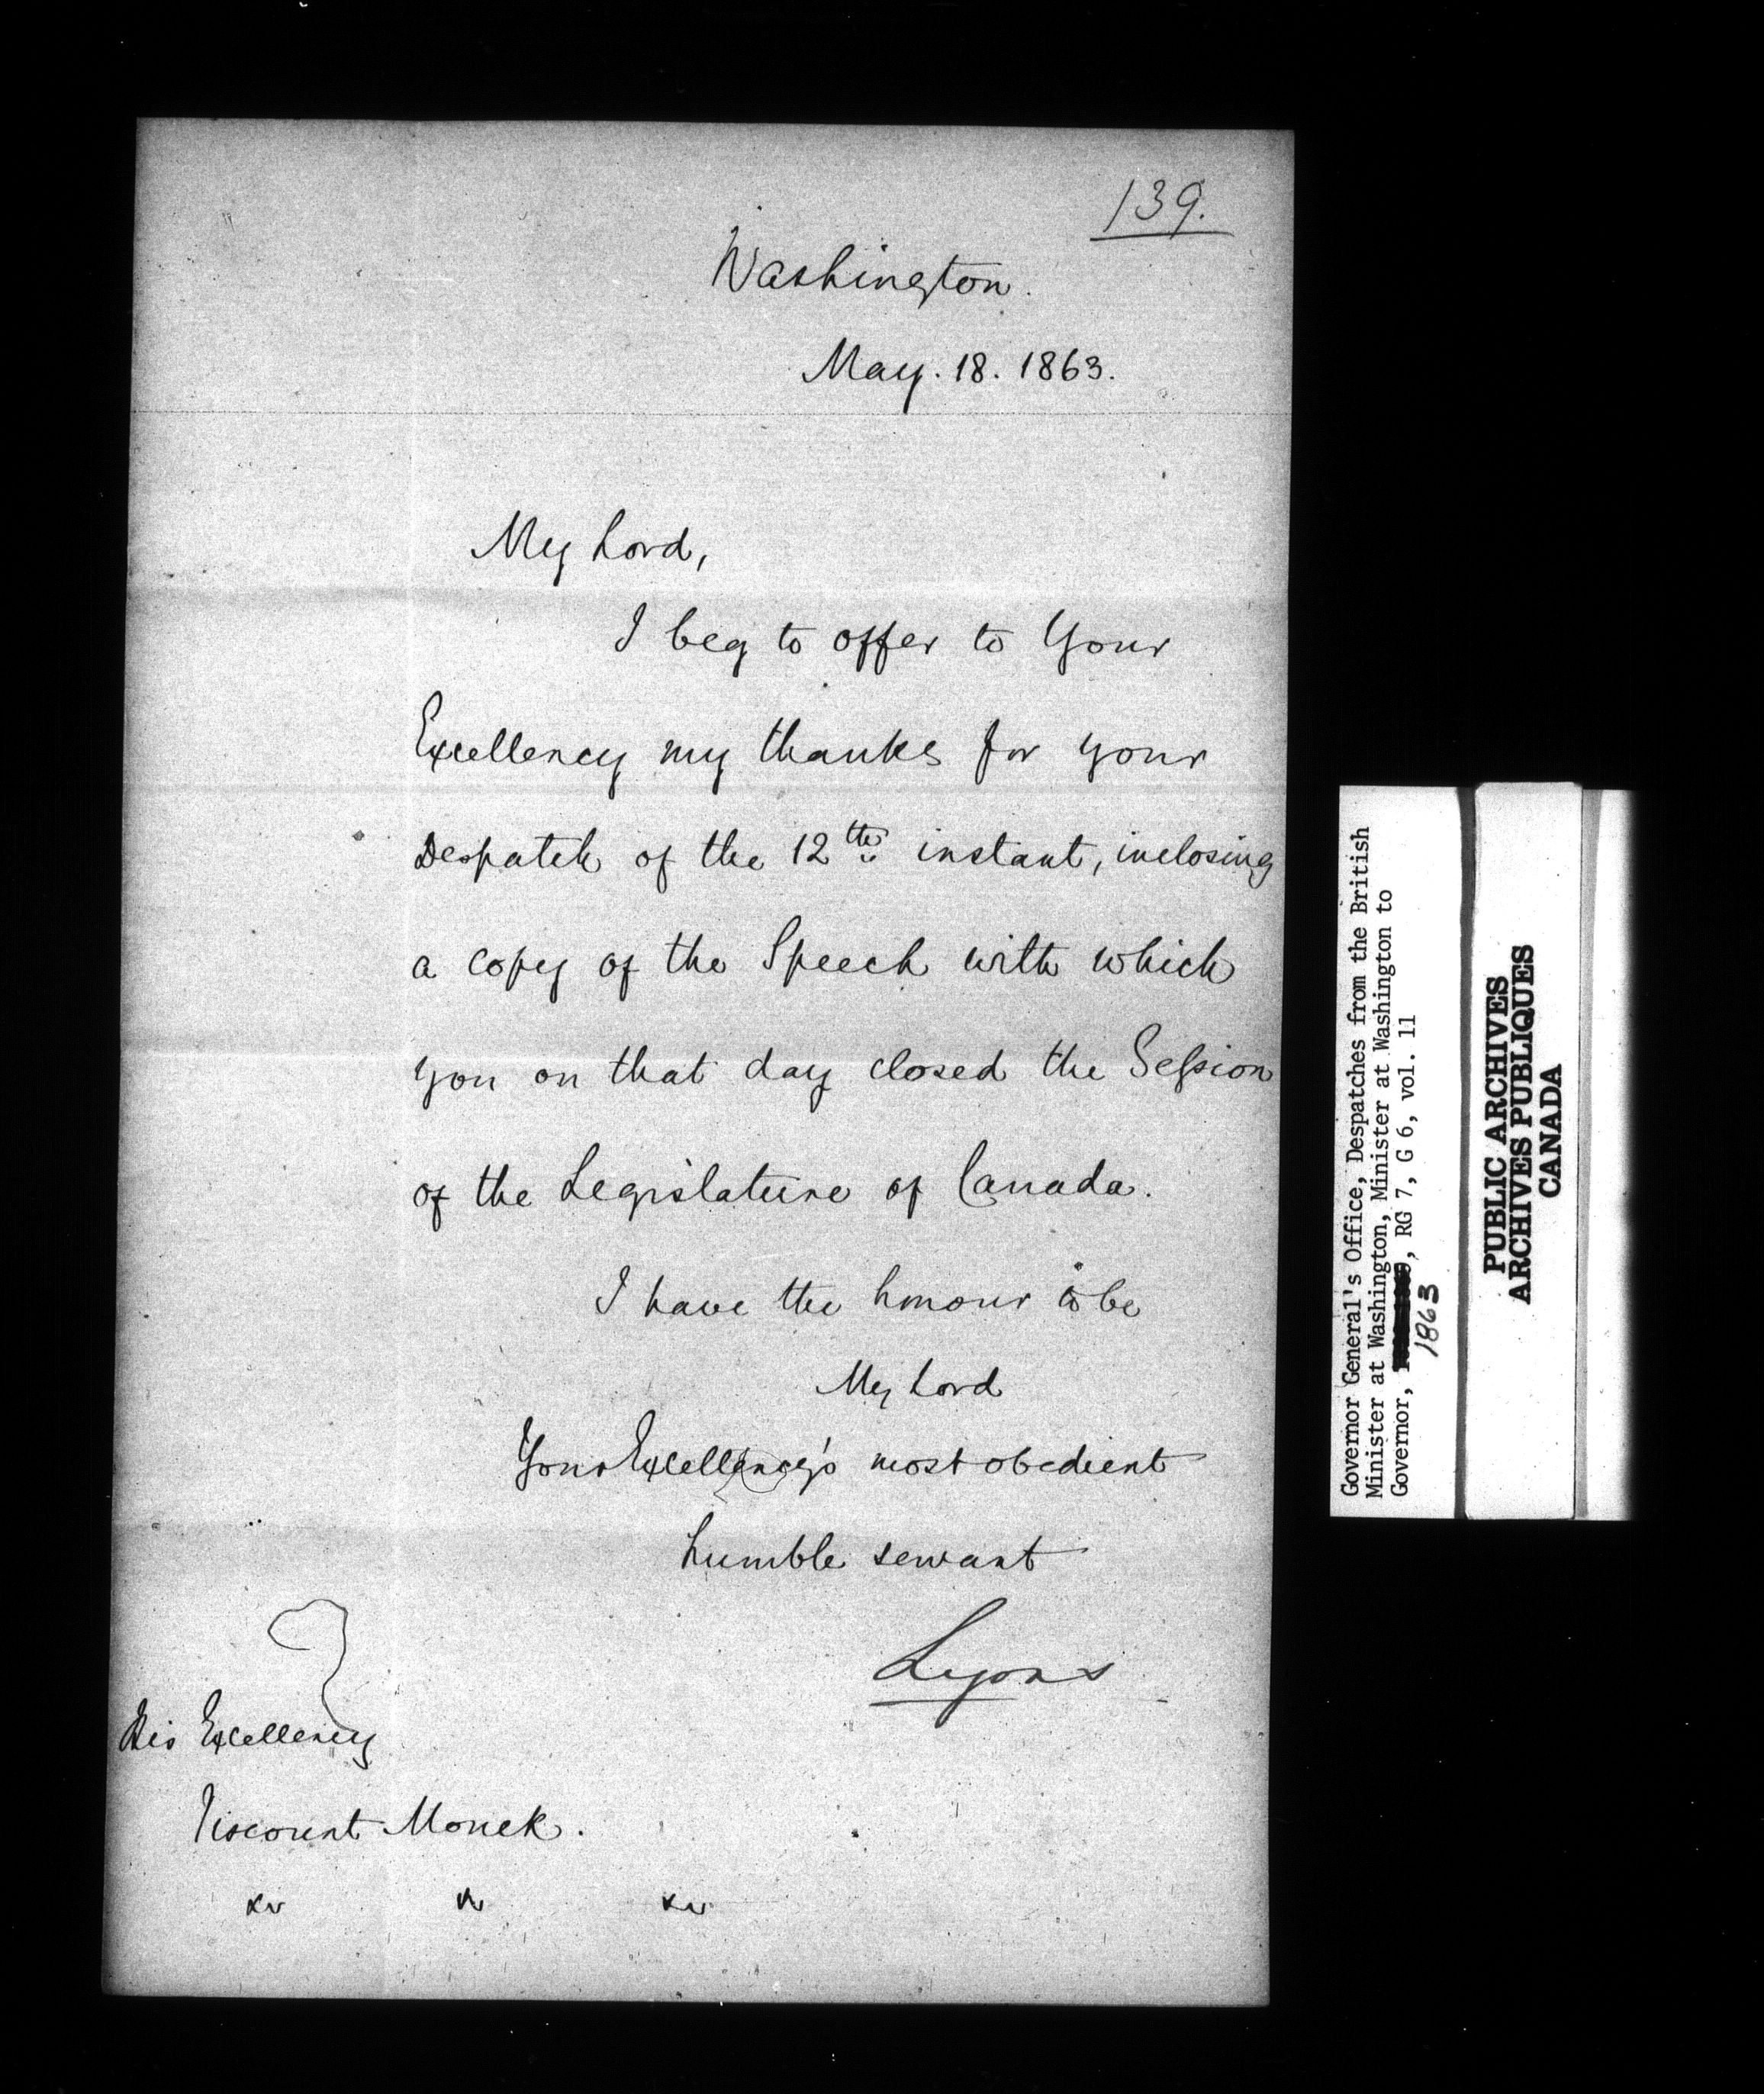 139.
Washington.
May. 18. 1863.
My Lord,
I beg to offer to Your
Excellency my thanks for your
Despatch of the 12th instant, inclosing
a copy of the Speech with which
you on that day closed the Session
of the Legislature of Canada.
I have the honour to be
My Lord
Your Excellency's most obedient
humble servant
Lyons
His Excellency
Viscount Monck.
&c &c &c
Governor General's Office, Despatches from the British
Minister at Washington, Minister at Washington to
Governor, , RG 7, G 6, vol. 11
1863
PUBLIC ARCHIVES
ARCHIVES PUBLIQUES
CANADA